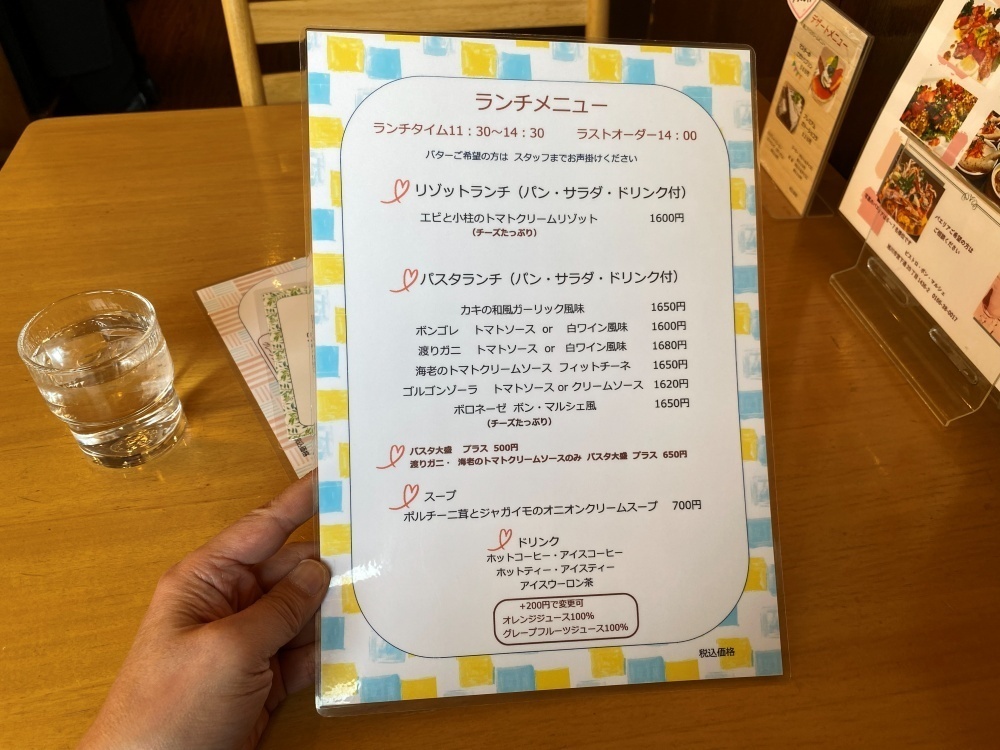 ランチメニュー
ランチタイム11：30～14：30　ラストオーダー14：00
バターご希望の方は スタッフまでお声掛けください
リゾットランチ（パン・サラダ・ドリンク付）
エビと小柱のトマトクリームリゾット　1600円
（チーズたっぷり）
パスタランチ（パン・サラダ・ドリンク付）
カキの和風ガーリック風味　1650円
ボンゴレ　トマトソース or 白ワイン風味　1600円
渡りガニ　トマトソース or 白ワイン風味　1680円
海老のトマトクリームソース フィットチーネ　1650円
ゴルゴンゾーラ　トマトソース or クリームソース　1620円
ボロネーゼ ボン・マルシェ風　1650円
（チーズたっぷり）
パスタ大盛　プラス 500円
渡りガニ・ 海老のトマトクリームソースのみ パスタ大盛 プラス 650円
スープ
ポルチーニ茸とジャガイモのオニオンクリームスープ　700円
ドリンク
ホットコーヒー・アイスコーヒー
ホットティー・アイスティー
アイスウーロン茶
+200円で変更可
オレンジジュース100%
グレープフルーツジュース100%
税込価格
デザートメニュー
パエリアご希望の方は
ご相談ください
ビストロ・ボン・マルシェ